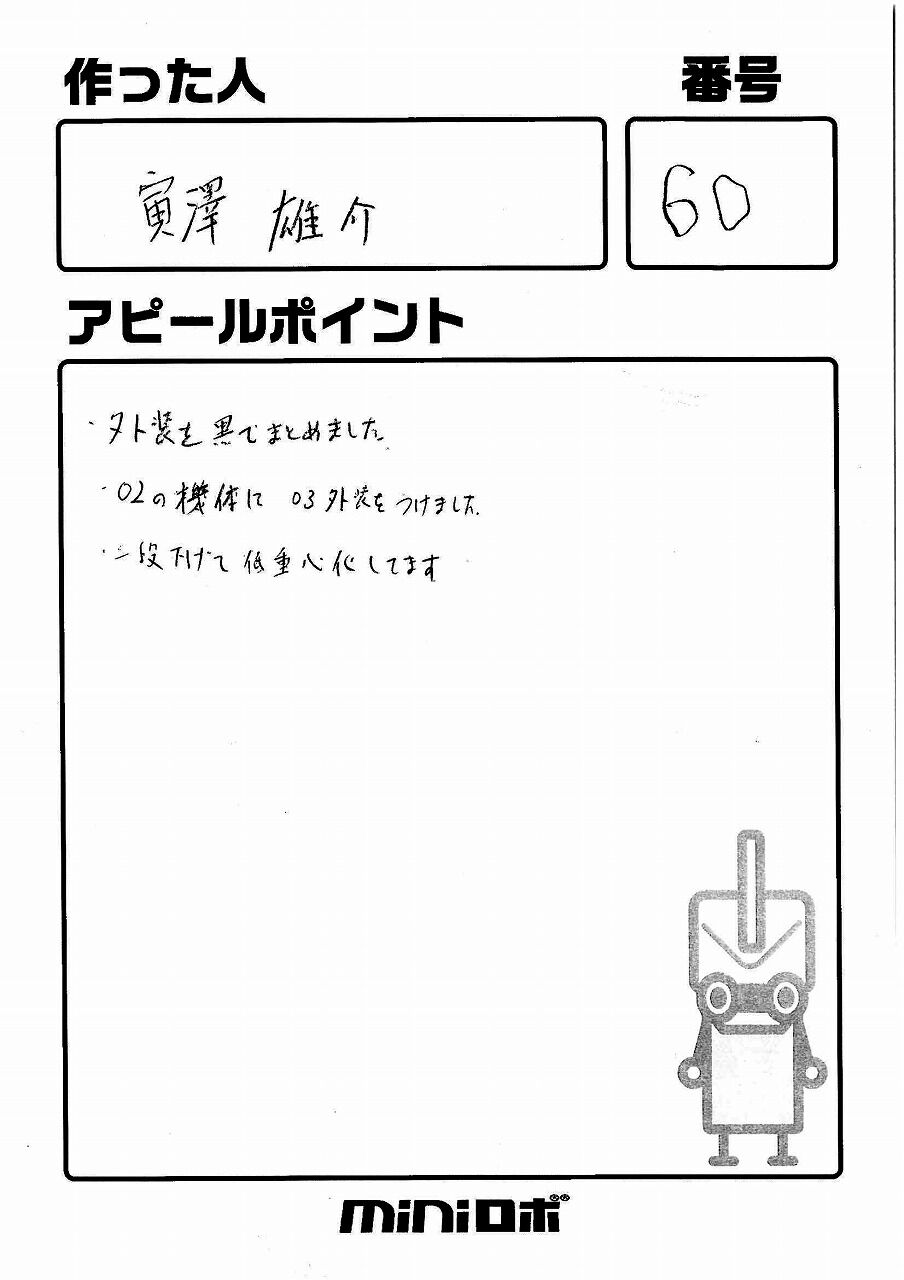 作った人
番号
寅澤 雄介
60
アピールポイント
・外装を黒でまとめました
・02の機体に 03外装をつけました
・二段下げて低重心化してます
miniロボ